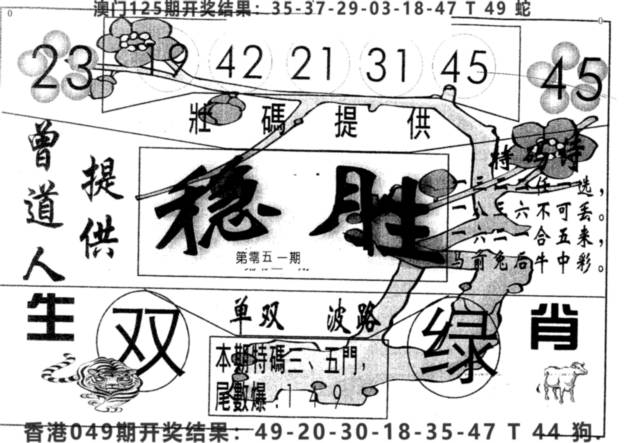 澳门125期开奖结果：35-37-29-03-18-47 T 49 蛇
23 19 42 21 31 45 45
壯碼提供
曾道人
提供
稳胜
第零五一期
特码诗
一三二一任一选，
一八三六不可丢。
一六二一合五来，
马前兔后牛中彩。
生 双 单双 波路 绿 肖
本期特碼三、五門，
尾數爆:149
香港049期开奖结果：49-20-30-18-35-47 T 44 狗